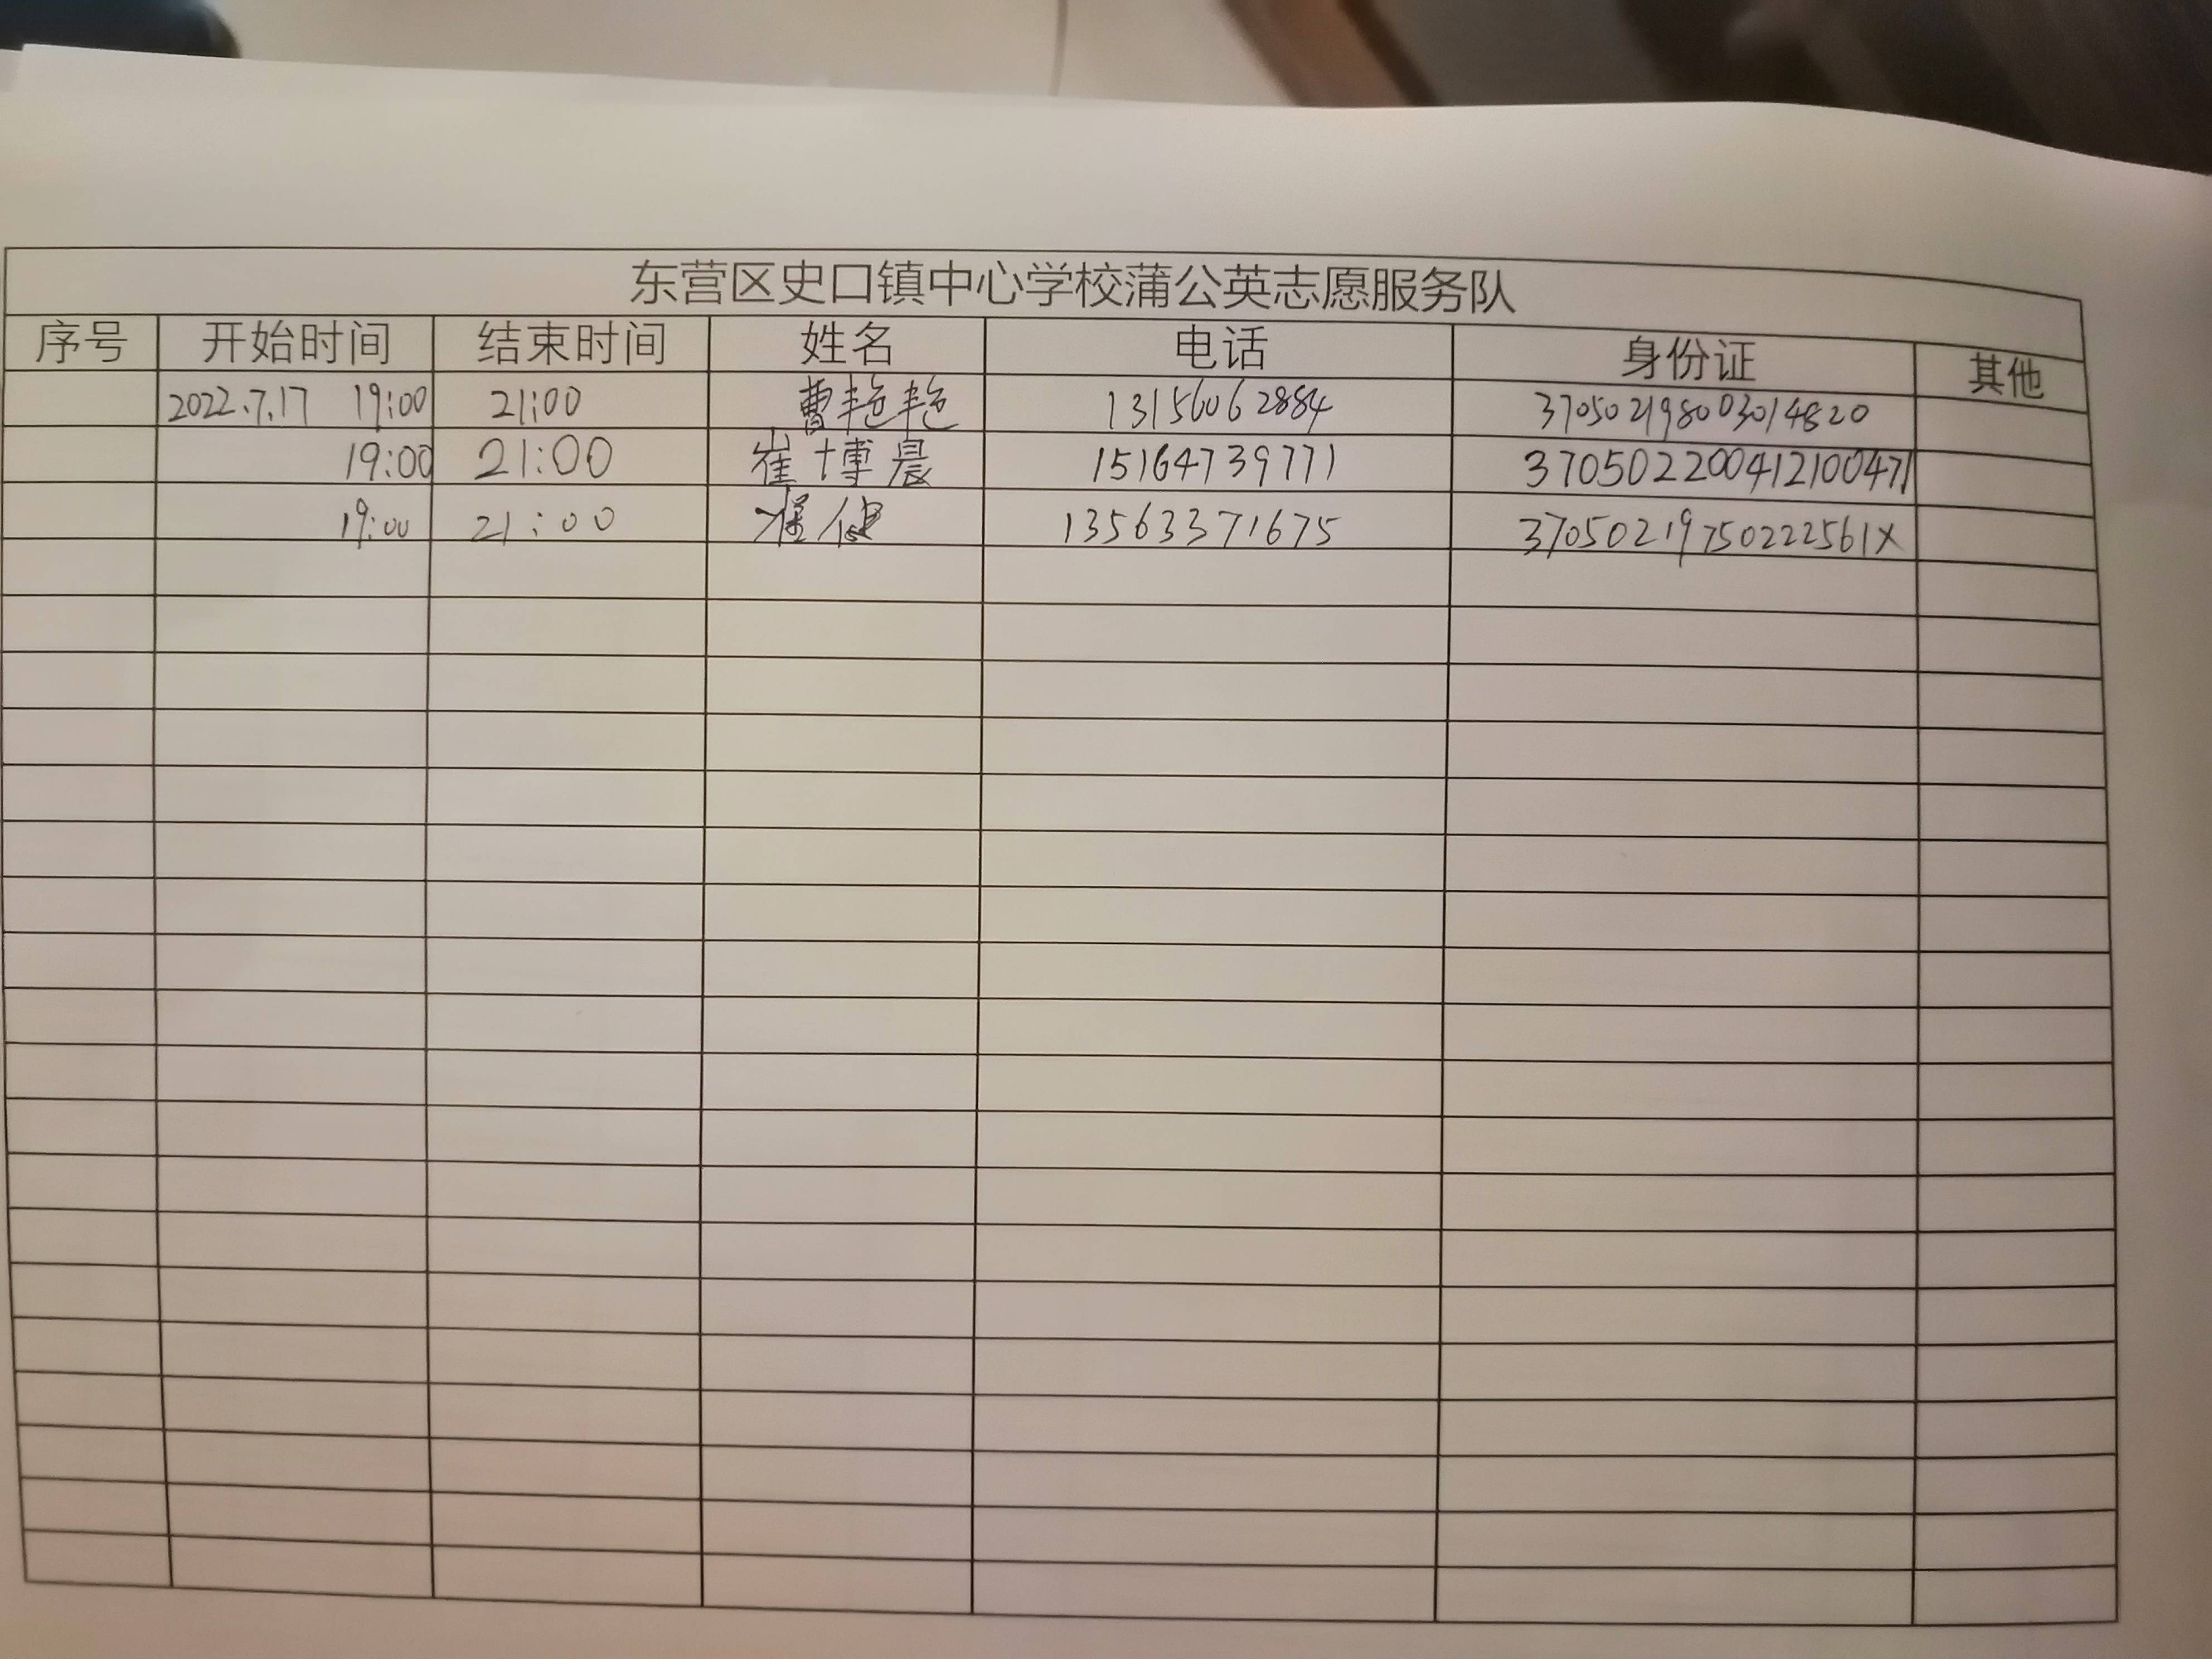 东营区史口镇中心学校蒲公英志愿服务队
序号 开始时间 结束时间 姓名 电话 身份证 其他
2022.7.17 19:00 21:00 曹艳艳 13156062884 370502198003014820
19:00 21:00 崔博晨 15164739771 370502200412100471
19:00 21:00 崔健 13563371675 37050219750222561X